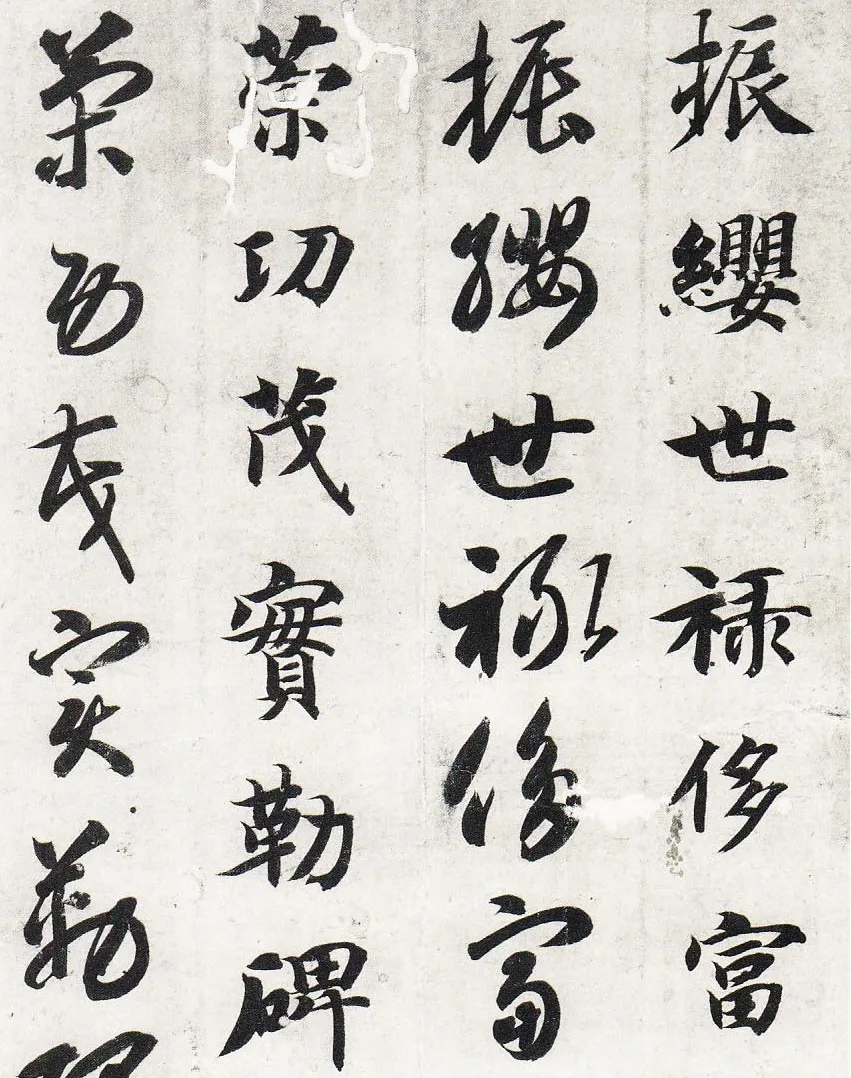 振纓世禄侈富
振纓世禄侈富
策功茂實勒碑
策功茂實勒